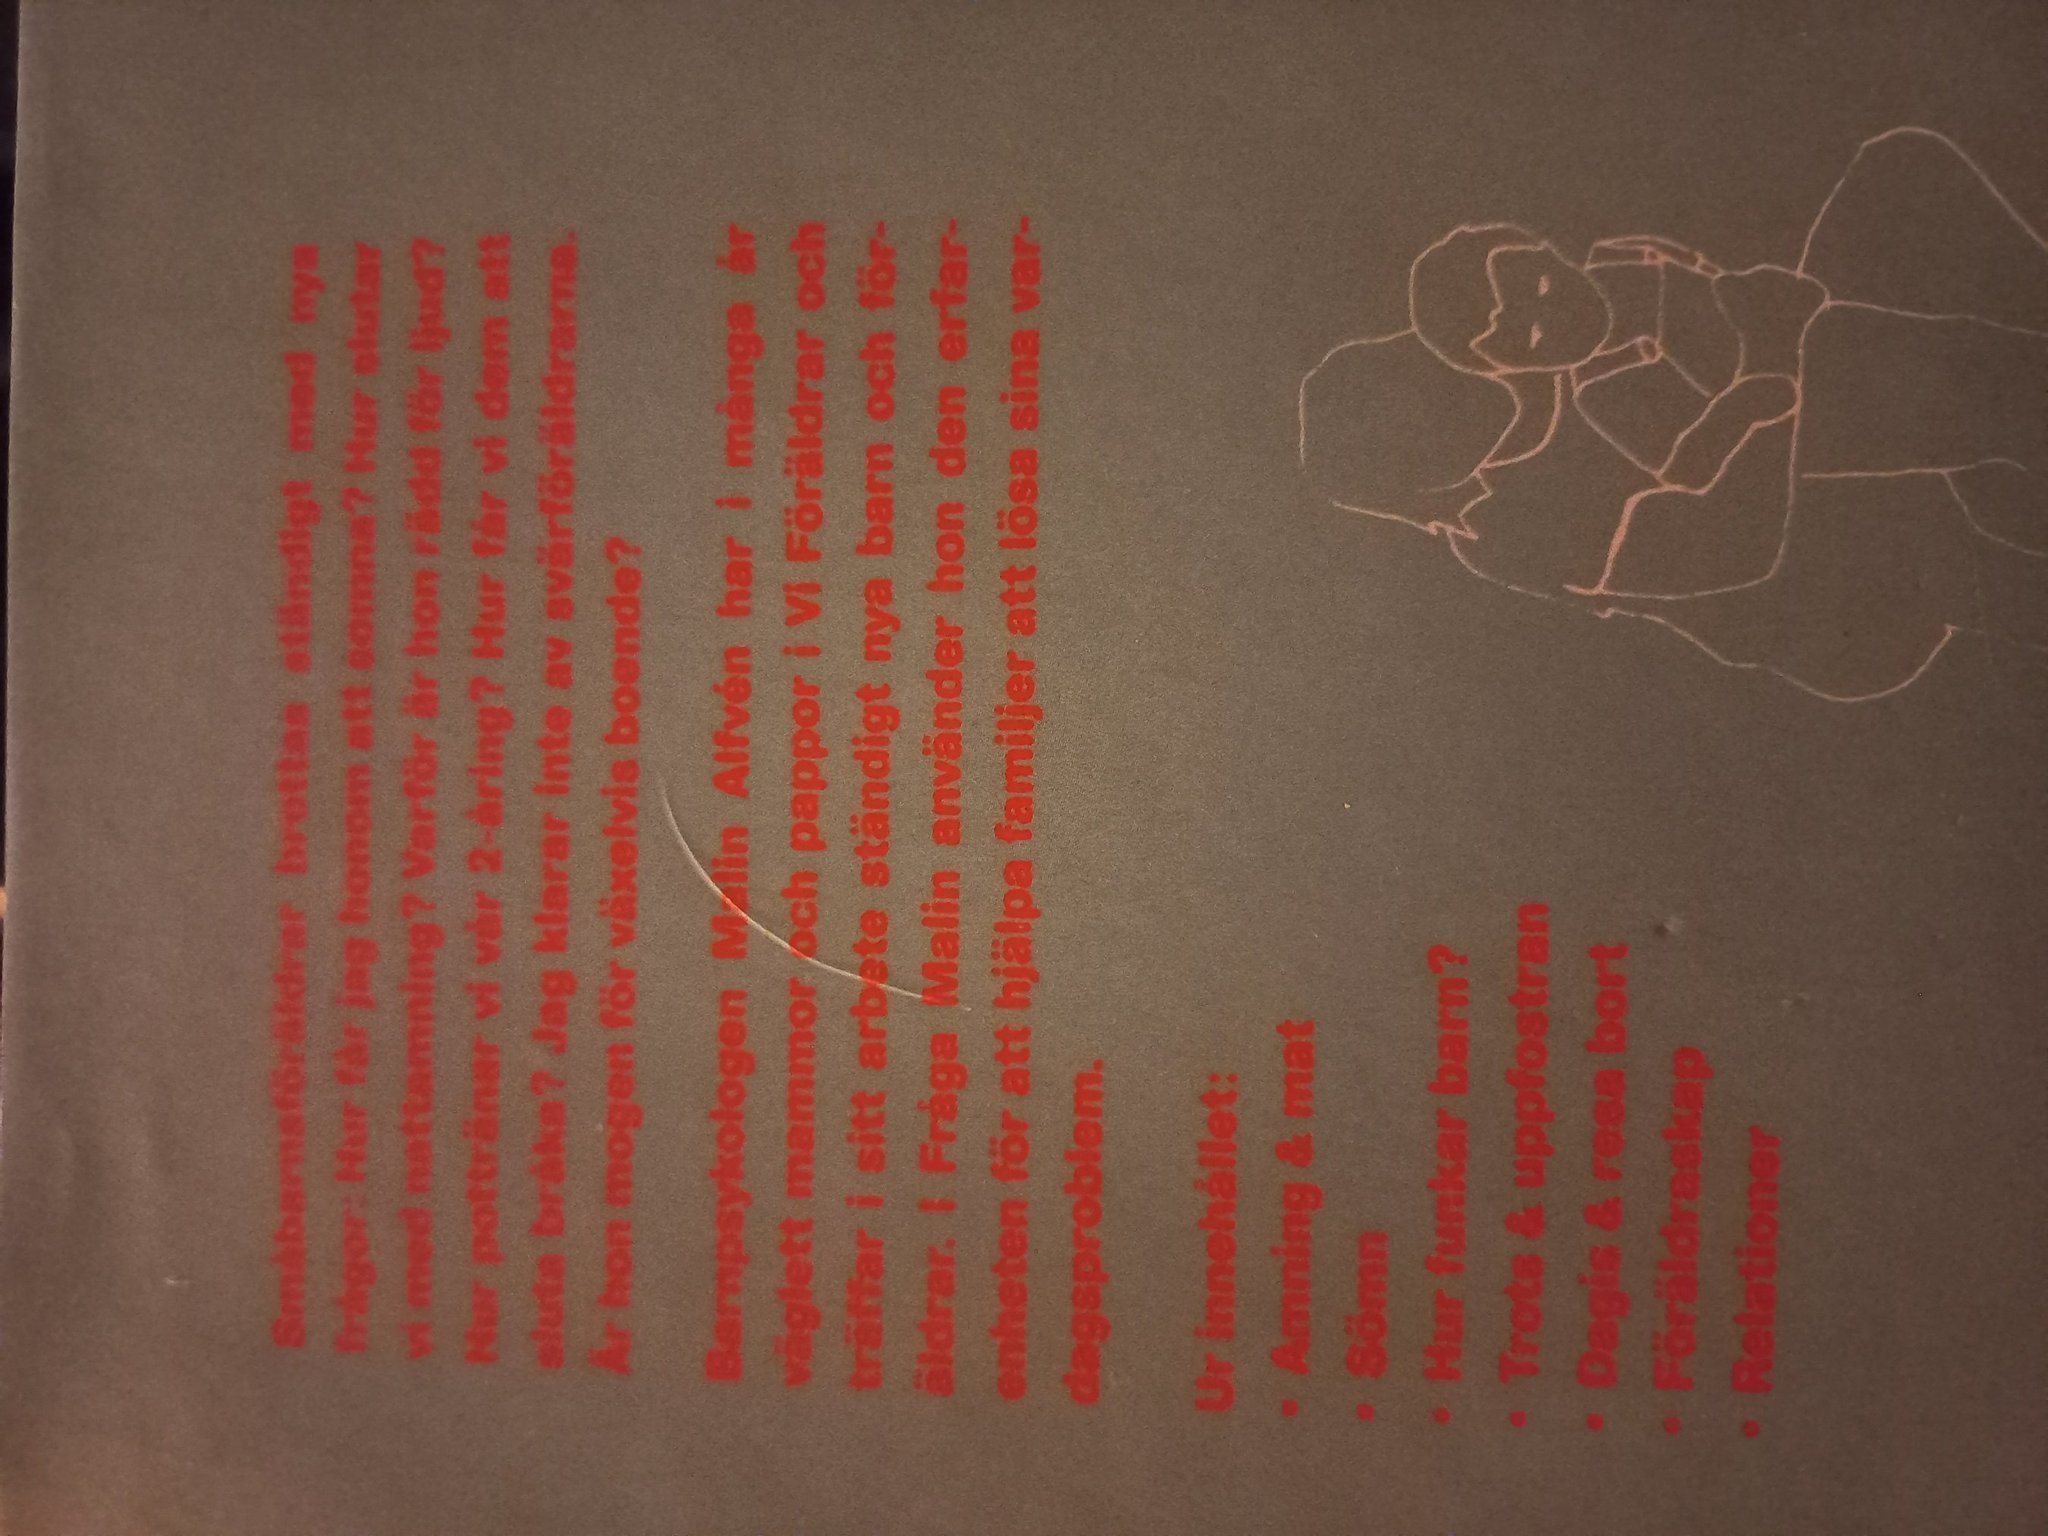 Småbarnsföräldrar brottas ständigt med nya
frågor: Hur får jag honom att somna? Hur slutar
vi med nattamning? Varför är hon rädd för ljud?
Hur pottränar vi vår 2-åring? Hur får vi dem att
sluta bråka? Jag klarar inte av svärföräldrarna.
Är hon mogen för växelvis boende?
Barnpsykologen Malin Alfvén har i många år
väglett mammor och pappor i Vi Föräldrar och
träffar i sitt arbete ständigt nya barn och för-
äldrar. I Fråga Malin använder hon den erfar-
enheten för att hjälpa familjer att lösa sina var-
dagsproblem.
Ur innehållet:
• Amning & mat
• Sömn
• Hur funkar barn?
• Trots & uppfostran
• Dagis & resa bort
• Föräldraskap
• Relationer